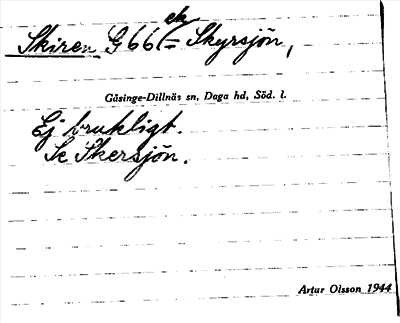 Skiren G 66 ek = Skyrsjön,
Gåsinge-Dillnäs sn, Daga hd, Söd. l.
Ej brukligt.
Se Skersjön.
Artur Olsson 1944